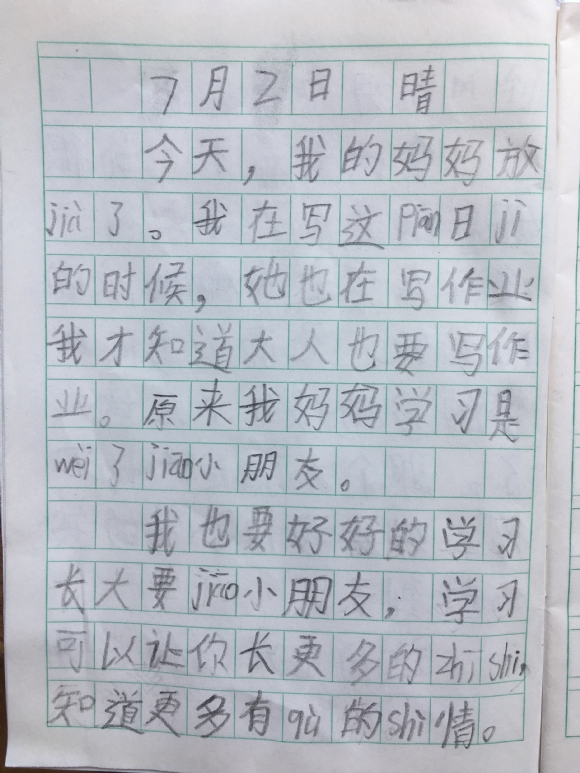 7月2日 晴
今天，我的妈妈放
jià了。我在写这piān日jì
的时候，她也在写作业
我才知道大人也要写作
业。原来我妈妈学习是
wèi了jiāo小朋友。
我也要好好的学习
长大要jiāo小朋友，学习
可以让你长更多的zhī shi，
知道更多有qù的shì情。